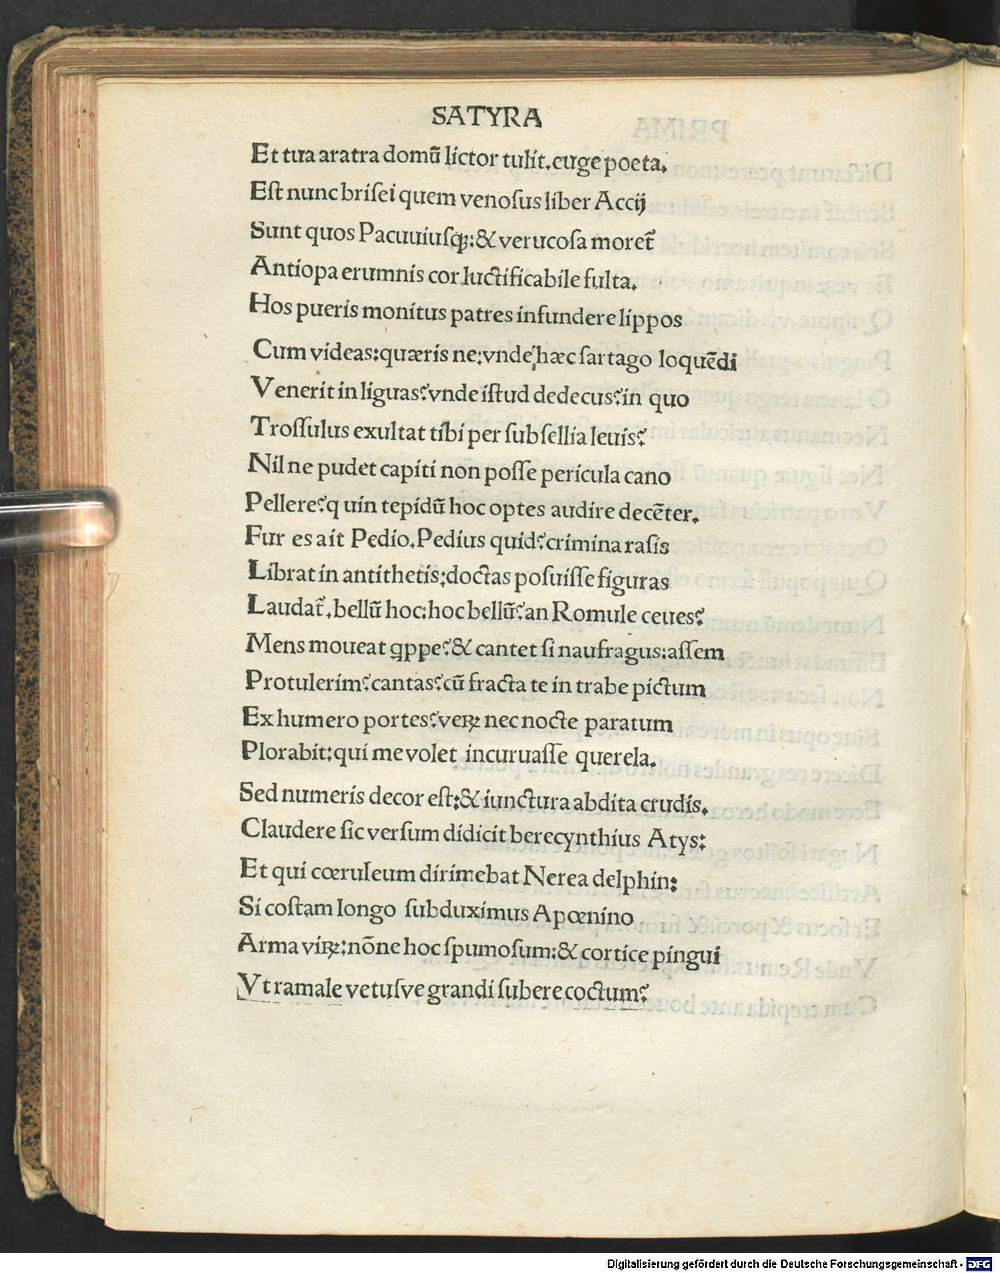 SATYRA
Et tua aratra domū lictor tulit.euge poeta.
Est nunc brisei quem venosus liber Accij
Sunt quos Pacuuiusqꝫ:& verucosa moret̃
Antiopa erumnis cor luctificabile fulta.
Hos pueris monitus patres infundere lippos
Cum videas:quæris ne:vnde hæc sartago loquēdi
Venerit in liguas?vnde istud dedecus?in quo
Trossulus exultat tibi per subsellia leuis?
Nil ne pudet capiti non posse pericula cano
Pellere?q uin tepidū hoc optes audire decēter.
Fur es ait Pedio.Pedius quid?crimina rasis
Librat in antithetis:doctas posuisse figuras
Laudat̃.bellū hoc:hoc bellū?an Romule ceues?
Mens moueat qppe?& cantet si naufragus:assem
Protulerim?cantas?cū fracta te in trabe pictum
Ex humero portes?veꝝ nec nocte paratum
Plorabit:qui me volet incuruasse querela.
Sed numeris decor est:& iunctura abdita crudis.
Claudere sic versum didicit berecynthius Atys:
Et qui cœruleum dirimebat Nerea delphin:
Si costam longo subduximus Apœnino
Arma viꝝ:nōne hoc spumosum:& cortice pingui
Vt ramale vetusve grandi subere coctum?
Digitalisierung gefördert durch die Deutsche Forschungsgemeinschaft - DFG